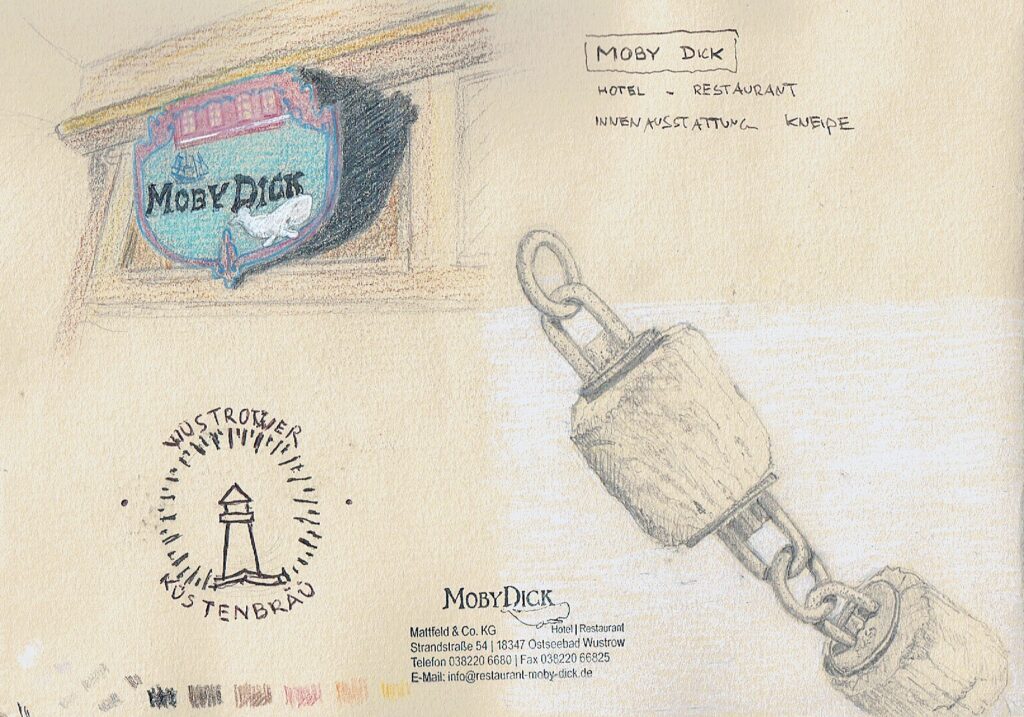 MOBY DICK
HOTEL - RESTAURANT
INNENAUSSTATTUNG KNEIPE
MOBY DICK
WUSTROWER
KÜSTENBRÄU
MOBYDICK
Hotel | Restaurant
Mattfeld & Co. KG
Strandstraße 54 | 18347 Ostseebad Wustrow
Telefon 038220 6680 | Fax 038220 66825
E-Mail: info@restaurant-moby-dick.de